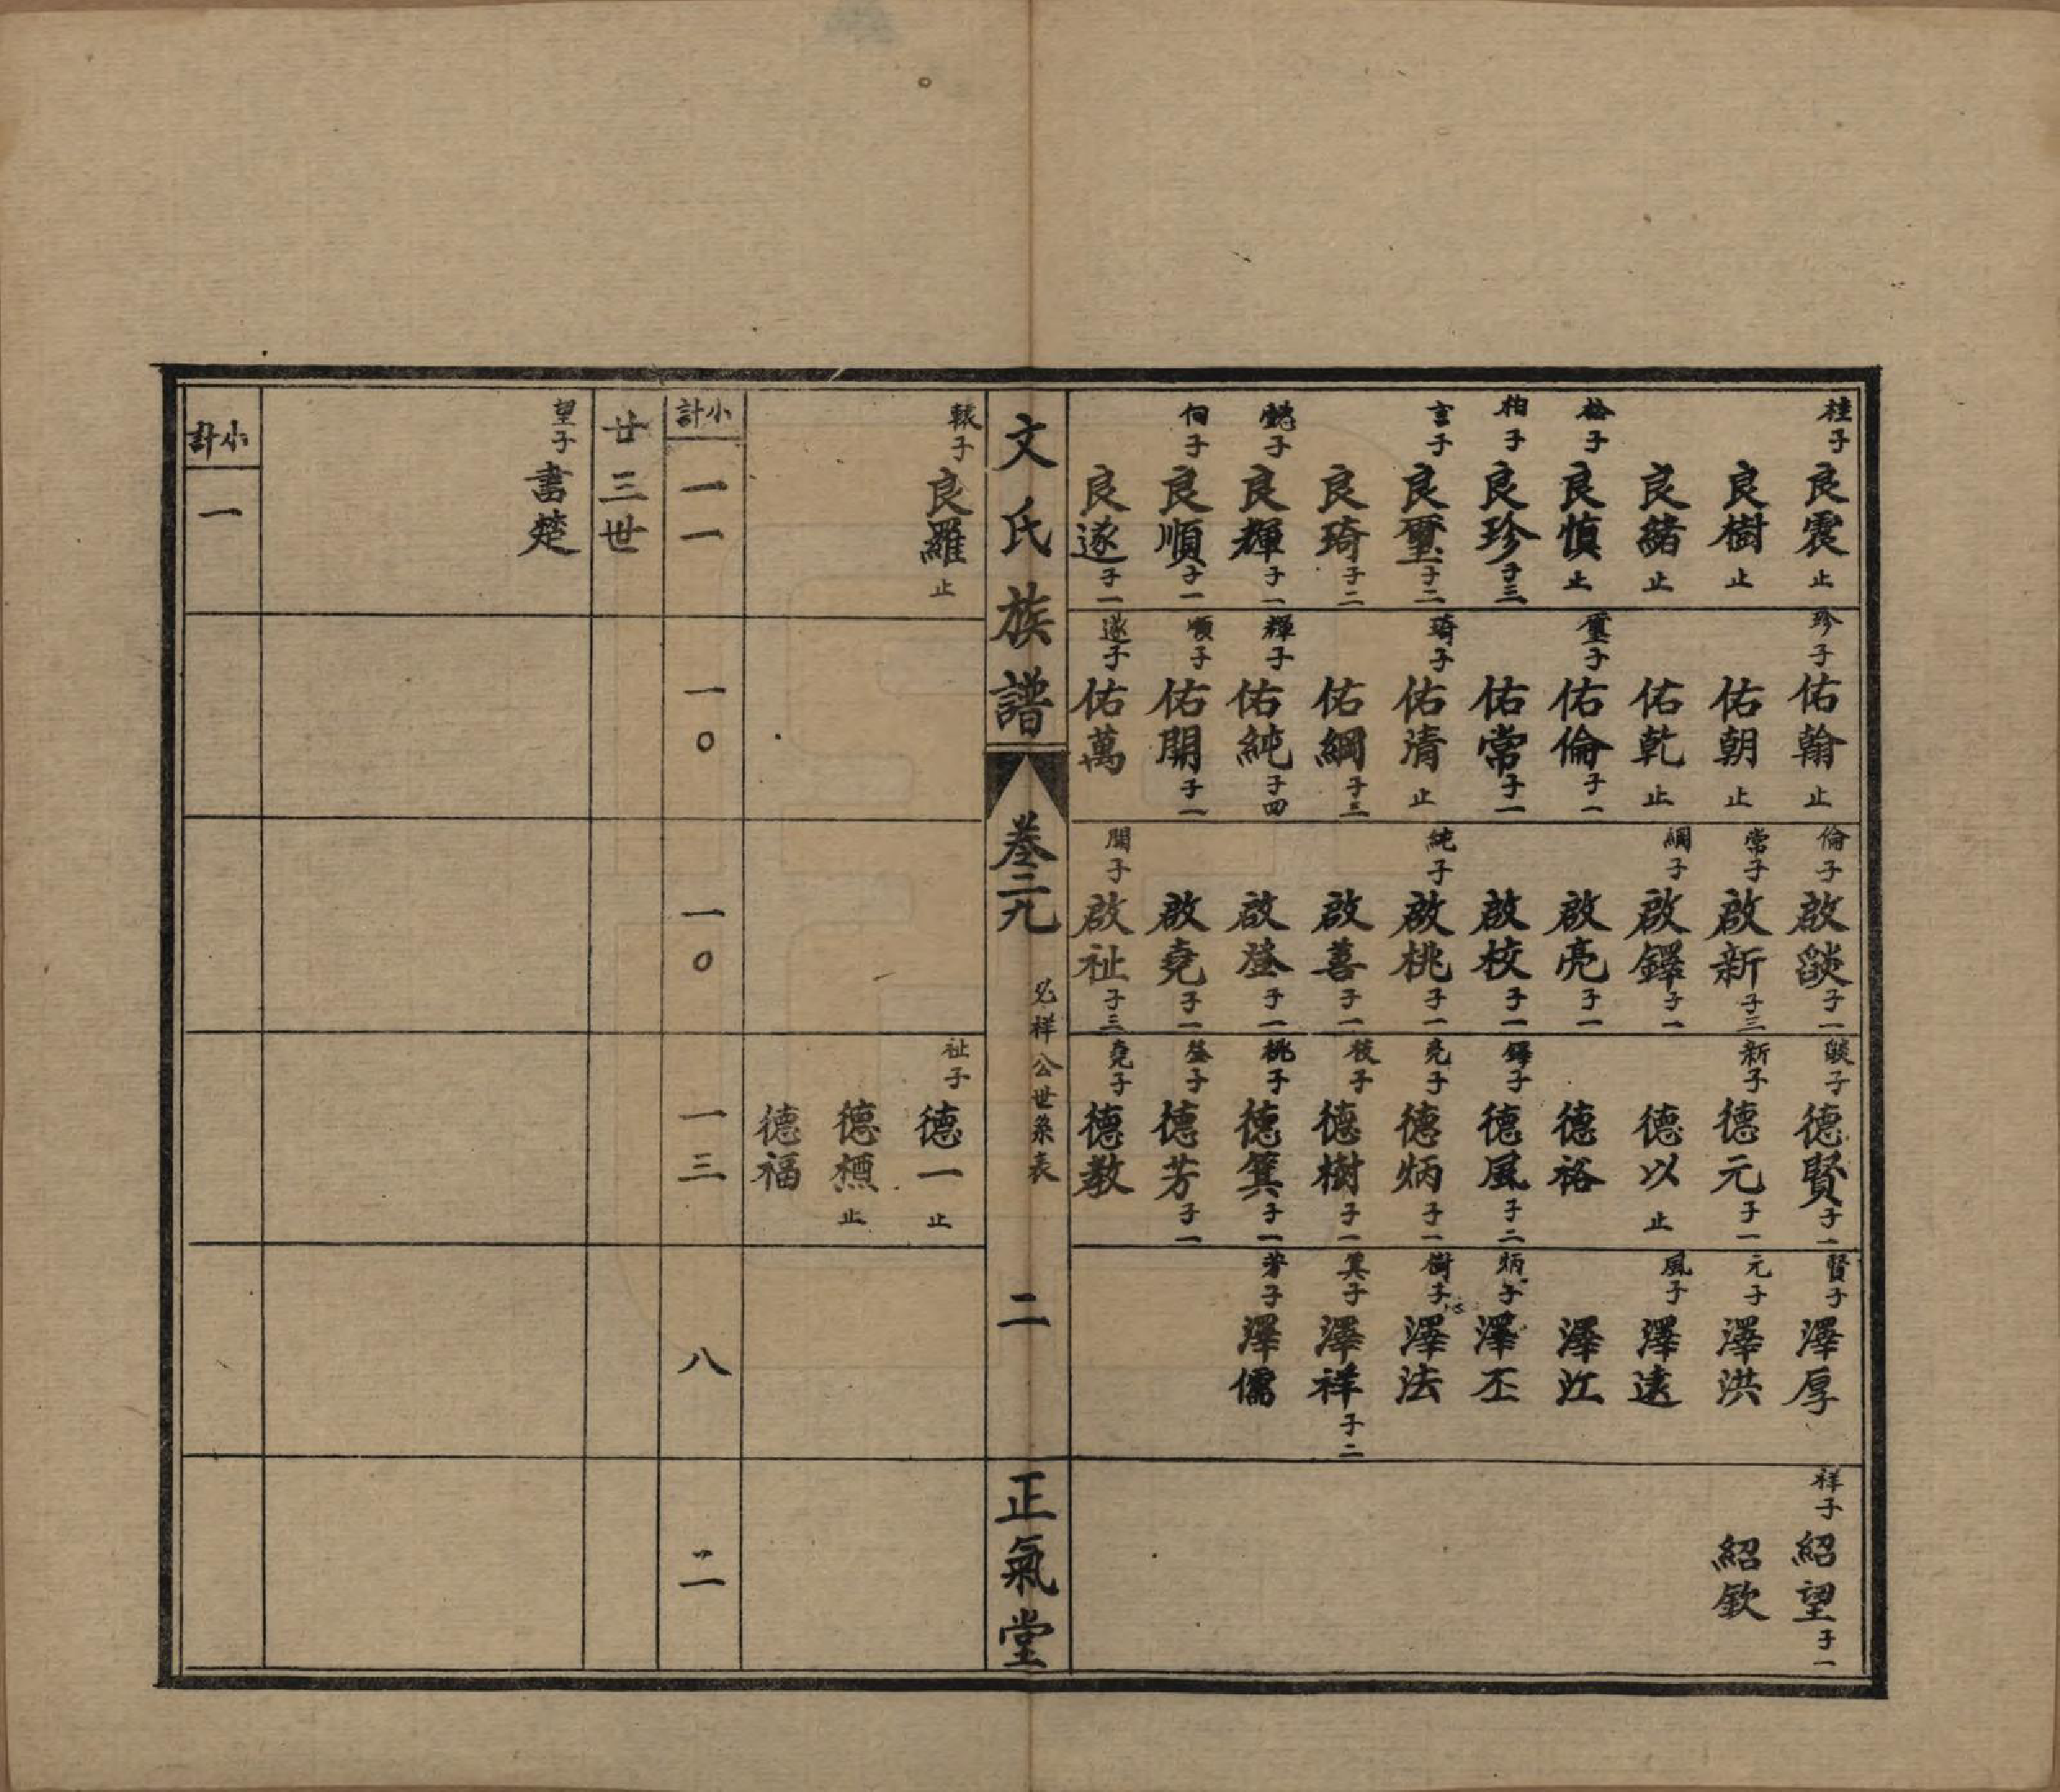 桂子 良震 止
良樹 止
良緒 止
良慎 止
柏子 良珍 子三
言子 良璽 子二
良琦 子二
懿子 良輝 子一
伺子 良順 子一
良遂 子一
珍子 佑翰 止
佑朝 止
佑乾 止
璽子 佑倫 子一
佑常 子一
琦子 佑清 止
佑綱 子三
輝子 佑純 子四
順子 佑開 子一
遂子 佑萬
倫子 啟燄 子一
常子 啟新 子三
綱子 啟鐸 子一
啟亮 子一
啟校 子一
純子 啟桃 子一
啟善 子一
啟登 子一
啟堯 子一
開子 啟祉 子三
燄子 德賢 子一
新子 德元 子一
德以 止
德裕
鐸子 德風 子二
亮子 德炳 子一
校子 德樹 子一
桃子 德箕 子一
登子 德芳 子一
堯子 德教
賢子 澤厚
元子 澤洪
風子 澤遠
澤江
炳子 澤丕
樹子 澤法
箕子 澤祥 子二
芳子 澤儒
祥子 紹望 子一
紹欽
文氏族譜
卷二九
必祥公世系表
二
正氣堂
良羅 止
祉子 德一 止
德標 止
德福
小計
一一
一〇
一〇
一三
八
二
廿三世
望子 書楚
小計
一